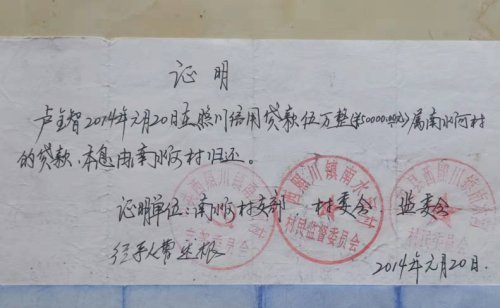 证明
卢全智2014年元月20日在照川信用贷款伍万整(¥50000.00元)属南水河村
的贷款,本息由南水河村归还。
证明单位:南水河村支部 村委会 监委会
西照川镇南水河村
村民监督委员会
经手人曹丕根
2014年元月20日.